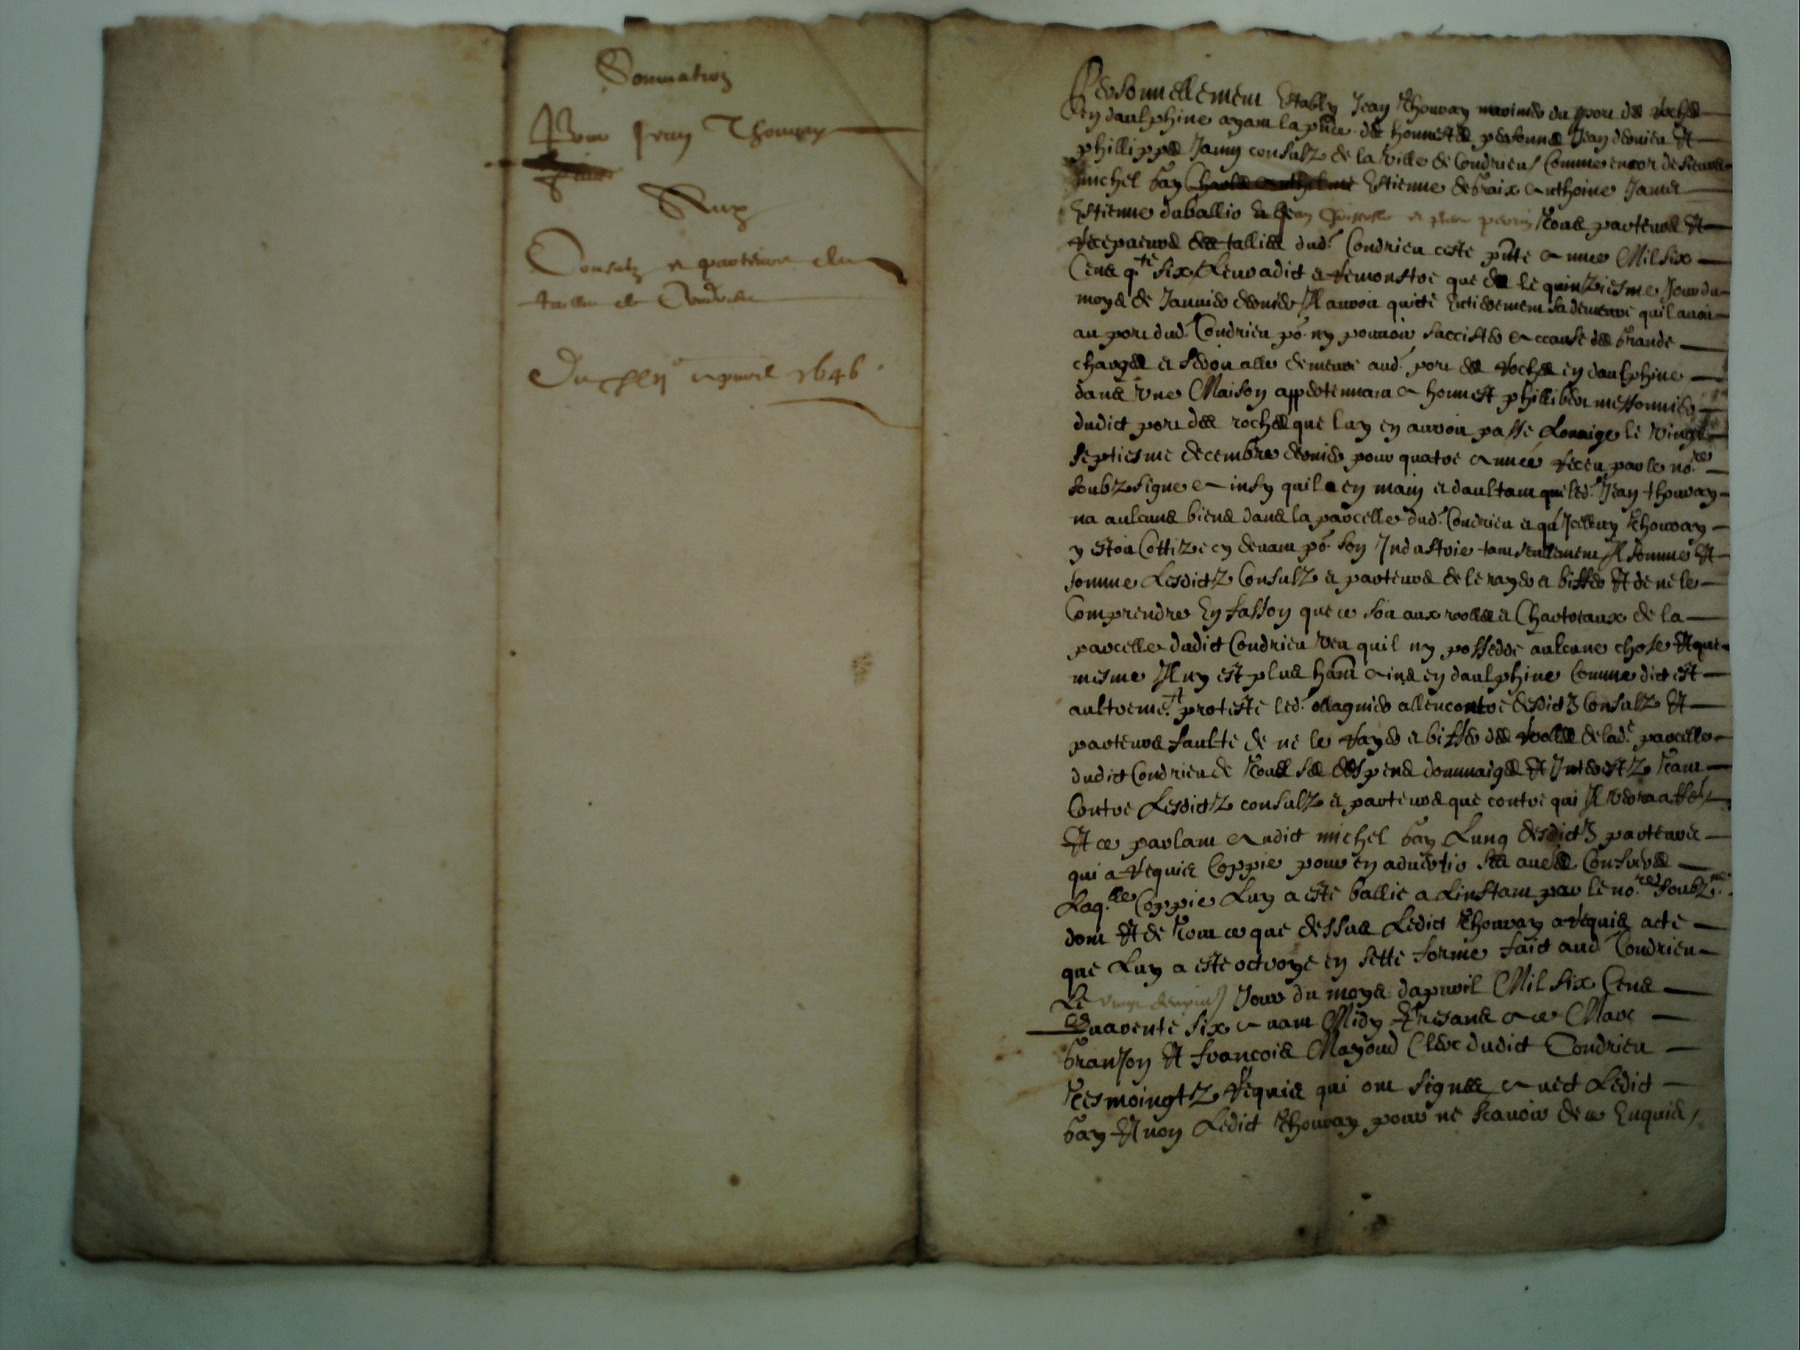 Sommation
Pour Jean Thouvay
Aux
Consulz et parteurs du
taillies de Condrieu
Du apvril 1646
Personnellement Estably Jean Thouvay marinier du port des roches
En daulphine ayant la pnce de honnestes personnes Jean dernieu Et
phillippe Jamy consulz de la ville de Condrieu / Comme encor de sieurs
michel bay Estienne debraix anthoine Janus
Estienne daballio et Jean et perrin tous parteurs Et
recepveurs des tallies dud. Condrieu ceste pnte annee Mil six
Cens qte six / Leur a dict et remonstre que des le quinziesme Jour du
moys de Janvier dernier Il avoit quicte Entierement sa demeure quil avoit
au port dud. Condrieu po. ny pouvoir saccister a cause des grande
charges et seroit alle demeure aud. port des roches en daulphine
dans une Maison appertennant a honnest phillibert messonnier
dudict port des roches que luy en auroit passe Louaige le vingt
septiesme decembre dernier pour quatre annee receu par le nore
soubzsigne ainsy quil a en main et daultant que led. Jean thouvay
na aulcuns biens dans la parcelle dud. Condrieu et qu Icelluy thouvay
y estoit Cottize cy devant po. son Industrie tant seullement Il somme Et
somme Lesdictz Consulz et parteurs de le rayer et biffer Et de ne le
Comprendre En fasson que ce soit aux rolles et Chartreaux de la
parcelle dudict Condrieu veu quil ny possedde aulcune chose Et que
mesme Il ny est plus hant ains en daulphine Comme dict est
aultreme.t proteste led. allencontre desdictz Consulz Et
parteurs faulte de ne le rayer et biffer des rolles de lad.e parcelle
dudict Condrieu de tous ses despens dommaiges Et Interestz tant
Contre Lesdictz consulz et parteurs que contre qui Il verra affe.
Et ce parlant audict michel bay Lung desdictz parteurs
qui a requis Coppie pour en advertir ses aueses Consorts
Laq.lle Coppie Luy a este ballie a Linstant par le nore soubz.ne
dont Et de tout ce que dessus Ledict thouvay a requis acte
que Luy a este octroye en sette forme faict aud Condrieu
Le Jour du moys dapvril Mil six Cens
Quarente six avant Midy Presans a ce Marc
branson Et francois Mazoud Clerc dudict Condrieu
tesmoingtz requis qui ont signes avec Ledict
bay Et non Ledict thouvay pour ne scavoir de ce Enquis /